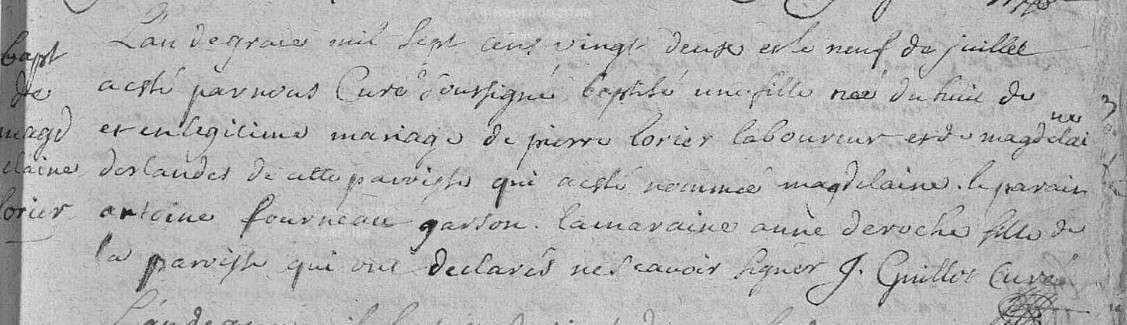 Bapt
de
magd
elaine
lorier
L'an de grace mil sept cens vingt deux et le neuf de juillet
a esté par nous Curé soussigné baptisé une fille née du huit de
et en legitime mariage de pierre lorier laboureur et de magdelai
ne
deslandes de cette paroisse qui a esté nommée magdelaine. le parain
antoine fourneau garson. la maraine anne deroche fille de
la paroisse qui ont declarés ne scavoir signer J. Guillot Curé